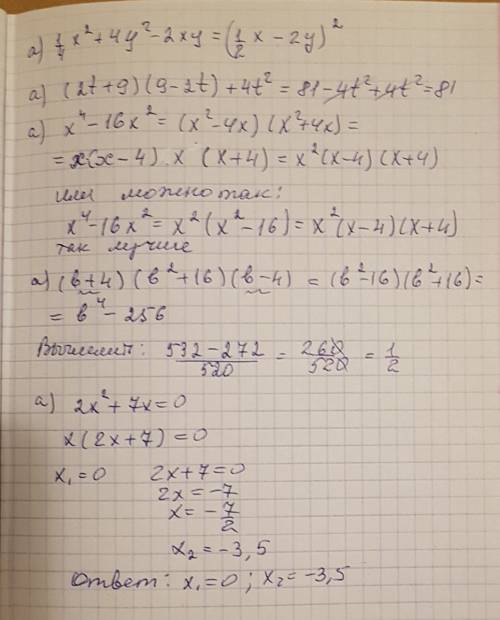 а) 1/4 x² + 4y² - 2xy = (1/2 x - 2y)²
а) (2t+9)(9-2t) + 4t² = 81 - 4t² + 4t² = 81
а) x⁴ - 16x² = (x² - 4x)(x² + 4x) =
= x(x-4) · x (x+4) = x²(x-4)(x+4)
или можно так:
x⁴ - 16x² = x²(x² - 16) = x²(x-4)(x+4)
так лучше
а) (в+4)(в²+16)(в-4) = (в²-16)(в²+16) =
= в⁴ - 256
Вычислит: 532-272/520 = 260/520 = 1/2
а) 2x² + 7x = 0
x(2x+7) = 0
x₁ = 0 2x+7 = 0
2x = -7
x = - 7/2
x₂ = -3,5
Ответ: x₁ = 0 ; x₂ = -3,5